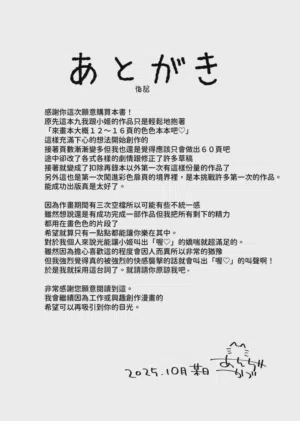 あとがき
後記
感謝你這次願意購買本書！
原先這本九我跟小姬的作品只是輕鬆地抱著
「來畫本大概１２～１６頁的色色本本吧♡」
這樣充滿下心的想法開始創作的
接著頁數漸漸變多但我也還是覺得應該只會做出６０頁吧
途中卻改了各式各樣的劇情跟修正了許多草稿
接著就變成了扣除再錄本以外第一次有這樣份量的作品了
另外這也是第一次闖進彩色扉頁的境界裡，是本挑戰許多第一次的作品。
能成功出版真是太好了。
因為作畫期間有三次空檔所以可能有些不統一感
雖然想說還是有成功完成一部作品但我把所有剩下的精力
都用在畫色色的片段了
希望就算只有一點點都能讓你樂在其中。
對於我個人來說光能讓小姬叫出「喔♡」的嬌喘就超滿足的。
雖然因為擔心喜歡這的程度會因人而異所以非常的猶豫
但我強烈覺得真的被強烈的快感襲擊的話就會叫出「喔♡」的叫聲啊！
於是我就採用這台詞了。就請請你原諒我吧。
非常感謝您願意閱讀到這。
我會繼續因為工作或興趣創作漫畫的
希望可以再吸引到你的目光。
2025.10月某日